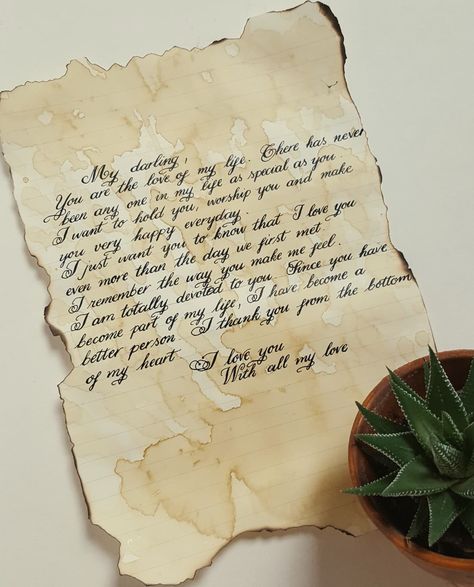 My darling,
You are the love of my life. There has never
been any one in my life as special as you
I want to hold you, worship you and make
you very happy everyday.
I just want you to know that I love you
even more than the day we first met.
I remember the way you make me feel.
I am totally devoted to you. Since you have
become part of my life, I have become a
better person. I thank you from the bottom
of my heart. I love you
With all my love